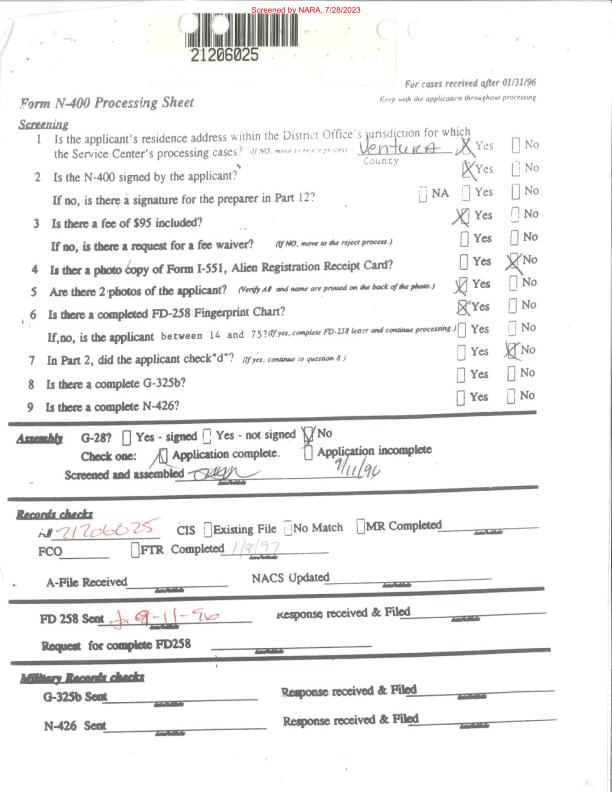 Screened by NARA, 7/28/2023
21206025
For cases received after 01/31/96
Form N-400 Processing Sheet
Keep with the application throughout processing
Screening
1 Is the applicant's residence address within the District Office's jurisdiction for which
the Service Center's processing cases? (If NO, move to reject process. Ventura Yes No
County
2 Is the N-400 signed by the applicant? Yes No
If no, is there a signature for the preparer in Part 12? NA Yes No
3 Is there a fee of $95 included? Yes No
If no, is there a request for a fee waiver? (If NO, move to the reject process.) Yes No
4 Is ther a photo copy of Form I-551, Alien Registration Receipt Card? Yes No
5 Are there 2 photos of the applicant? (Verify A# and name are printed on the back of the photo.) Yes No
6 Is there a completed FD-258 Fingerprint Chart? Yes No
If,no, is the applicant between 14 and 75?(If yes, complete FD-258 letter and continue processing.) Yes No
7 In Part 2, did the applicant check"d"? (If yes, continue to question 8.) Yes No
8 Is there a complete G-325b? Yes No
9 Is there a complete N-426? Yes No
Assembly G-28? Yes - signed Yes - not signed No
Check one: Application complete. Application incomplete
Screened and assembled 9/11/96
Records checks
A# 21206025 CIS Existing File No Match MR Completed
FCO FTR Completed 1/8/97
A-File Received NACS Updated
FD 258 Sent 9-11-96 Response received & Filed
Request for complete FD258
Military Records checks
G-325b Sent Response received & Filed
N-426 Sent Response received & Filed